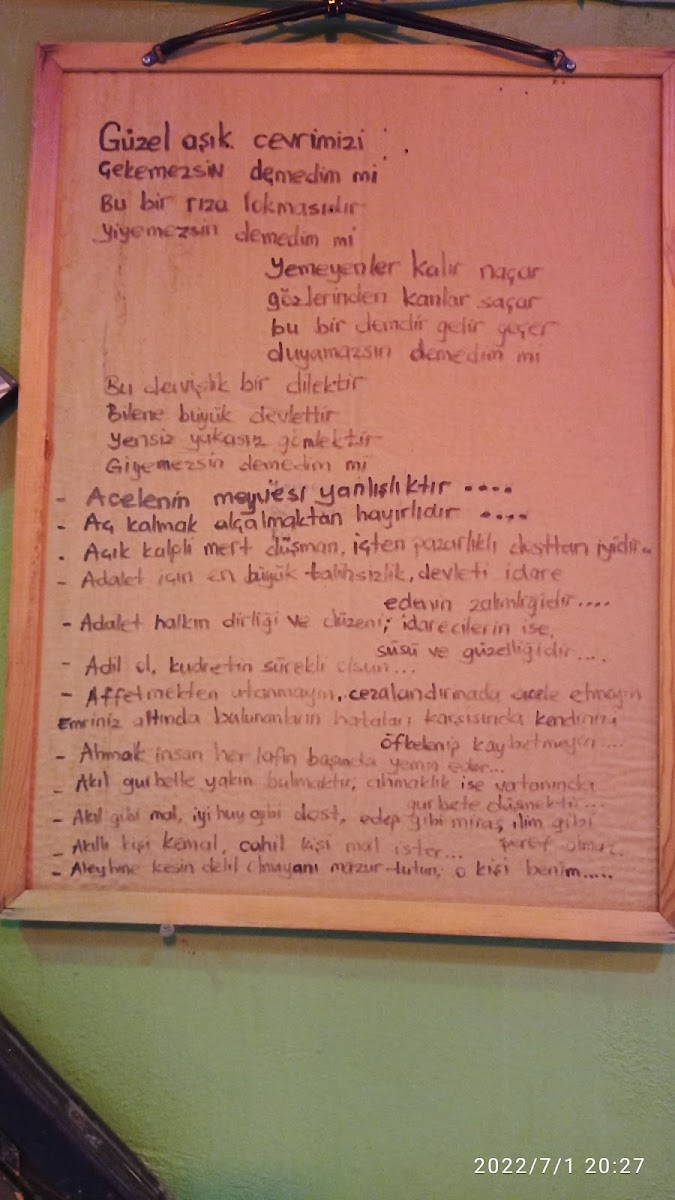 Güzel aşık cevrimizi
Çekemezsin demedim mi
Bu bir rıza lokmasıdır
yiyemezsin demedim mi
Yemeyenler kalır naçar
gözlerinden kanlar saçar
bu bir demdir gelir geçer
duyamazsın demedim mi
Bu dervişlik bir dilektir
Bilene büyük devlettir
Yensiz yakasız gömlektir
Giyemezsin demedim mi
- Acelenin meyvesi yanlışlıktır ....
- Aç kalmak alçalmaktan hayırlıdır ....
. Açık kalpli mert düşman, içten pazarlıklı dosttan iyidir..
- Adalet için en büyük talihsizlik, devleti idare
edenin zalimliğidir....
- Adalet halkın dirliği ve düzeni; idarecilerin ise,
süsü ve güzelliğidir....
- Adil ol, kudretin sürekli olsun...
- Affetmekten utanmayın, cezalandırmada acele etmeyin
Emriniz altında bulunanların hataları karşısında kendinizi
öfkelenip kaybetmeyin....
- Ahmak insan her lafın başında yemin eder...
- Akıl gurbette yakın bulmaktır, ahmaklık ise vatanında
gurbete düşmektir...
- Akıl gibi mal, iyi huy gibi dost, edep gibi miras, ilim gibi
şeref olmaz.
- Akıllı kişi kemal, cahil kişi mal ister...
- Aleyhine kesin delil olmayanı mazur tutun; o kişi benim.....
2022/7/1 20:27